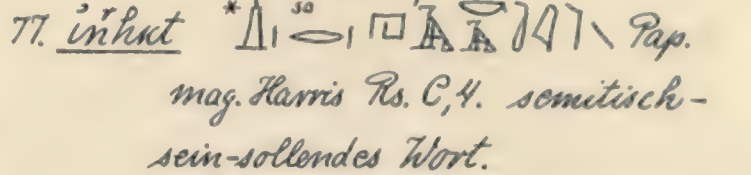 77. so Pap.
mag. Harris Rs. C,4. semitisch-
sein-sollendes Wort.